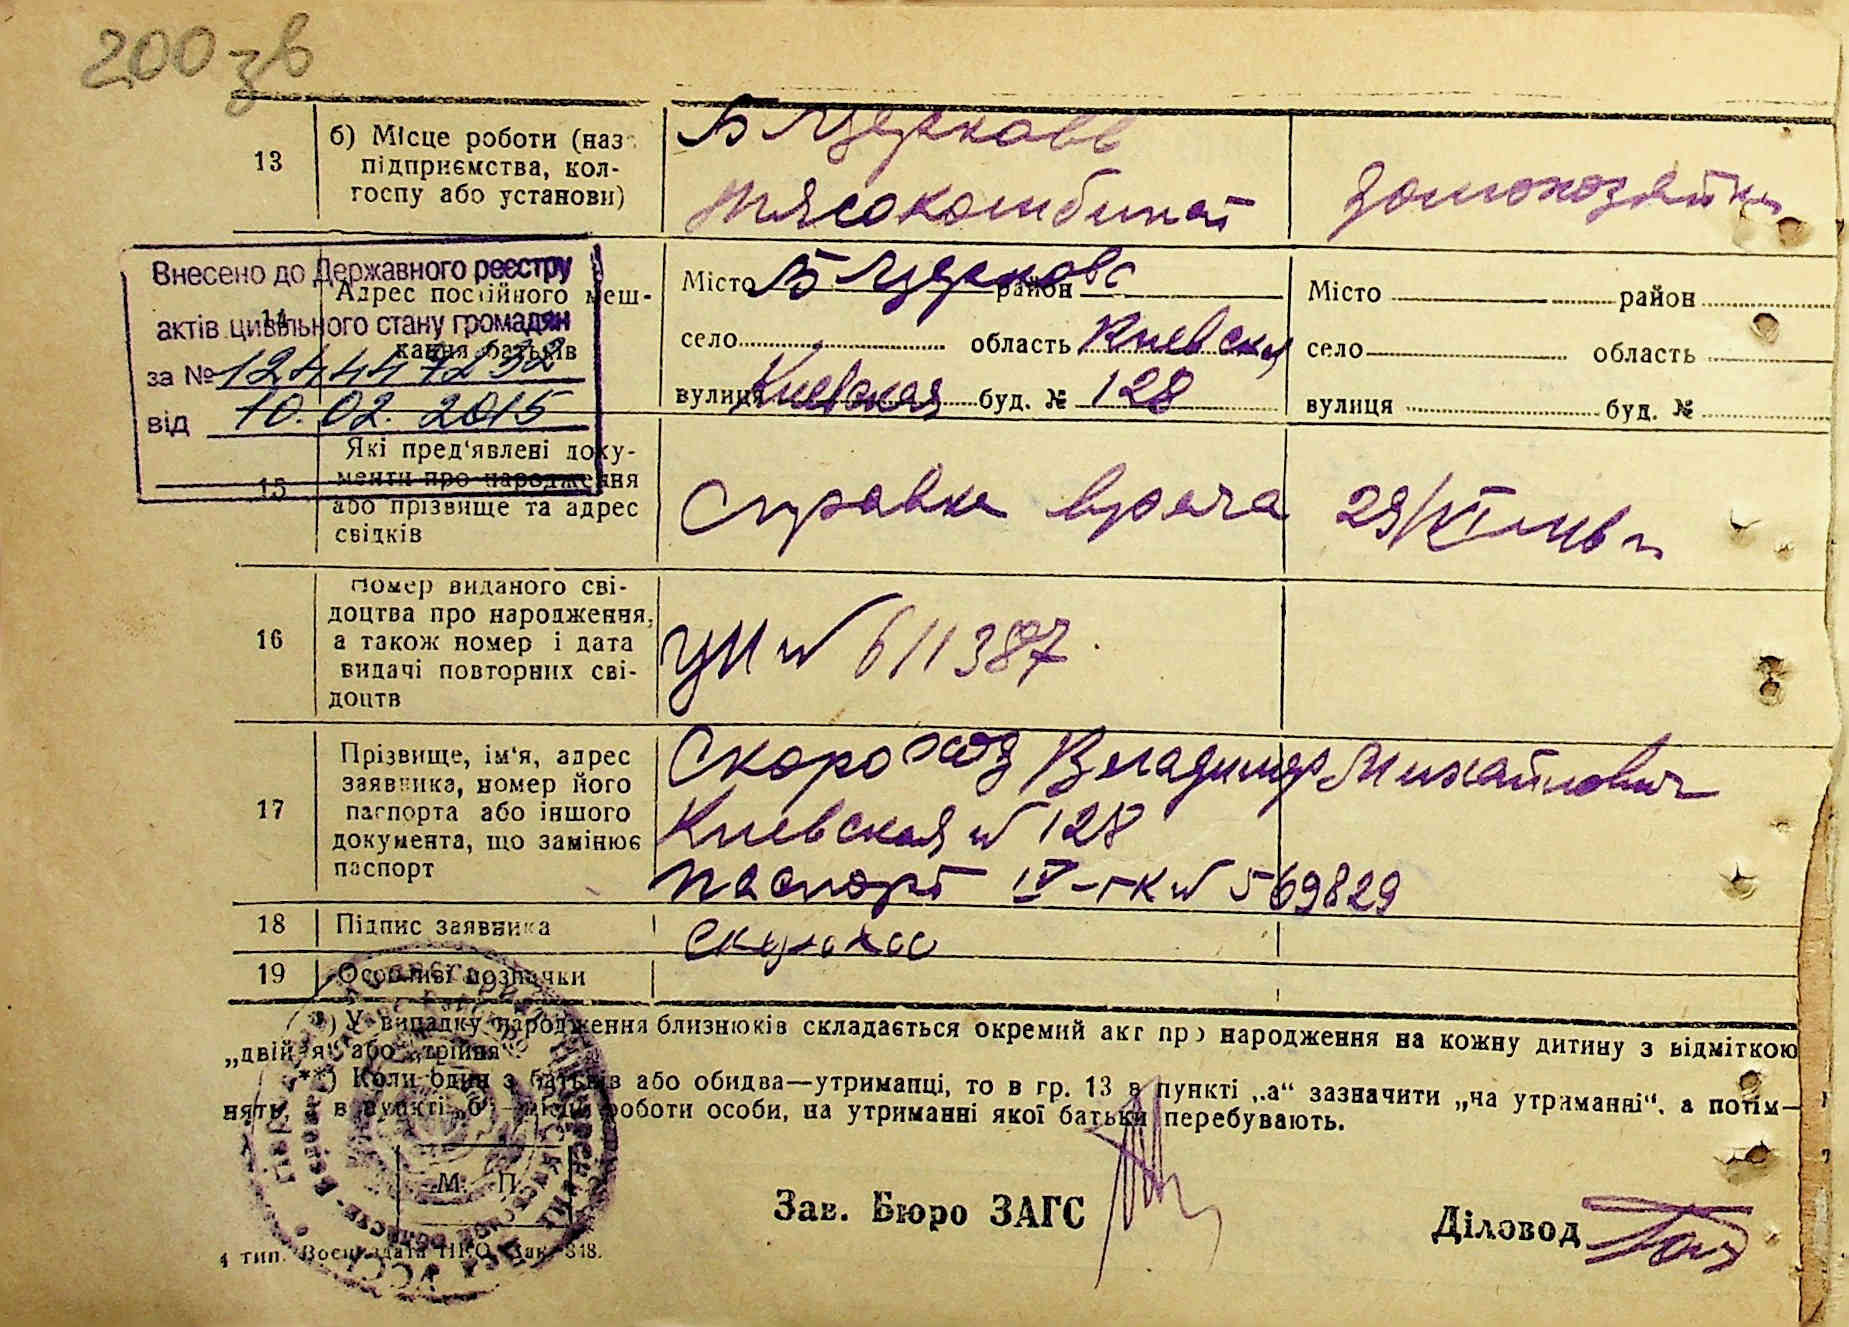 200 зв
13
б) Місце роботи (наз
підприємства, кол-
госпу або установи)
Б Церковь
Мясокомбинат
домохозяйка
Внесено до Державного реєстру
актів цивільного стану громадян
за № 12444 7232
від 10.02.2015
14
Адрес постійного меш-
кання батьків
Місто Б Церковь район
село область Киевская
вулиця Киевская буд. № 128
Місто район
село область
вулиця буд. №
15
Які пред'явлені доку-
менти про народження
або прізвище та адрес
свідків
Справка врача 29/VI
16
Номер виданого сві-
доцтва про народження,
а також номер і дата
видачі повторних сві-
доцтв
№ 611387
17
Прізвище, ім'я, адрес
заявника, номер його
паспорта або іншого
документа, що замінює
паспорт
Скороход Владимир Михайлович
Киевская № 128
паспорт IV-ГК № 569829
18
Підпис заявника
19
Особливі позначки
*) У випадку народження близнюків складається окремий акт про народження на кожну дитину з відміткою
„двійня" або „трійня"
**) Коли один з батьків або обидва—утриманці, то в гр. 13 в пункті „а" зазначити „на утриманні", а потім—
нять, а в пункті „б"— місце роботи особи, на утриманні якої батьки перебувають.
М. П.
Зав. Бюро ЗАГС
Діловод
4 тип. Воениздата НКО. Зак. 318.